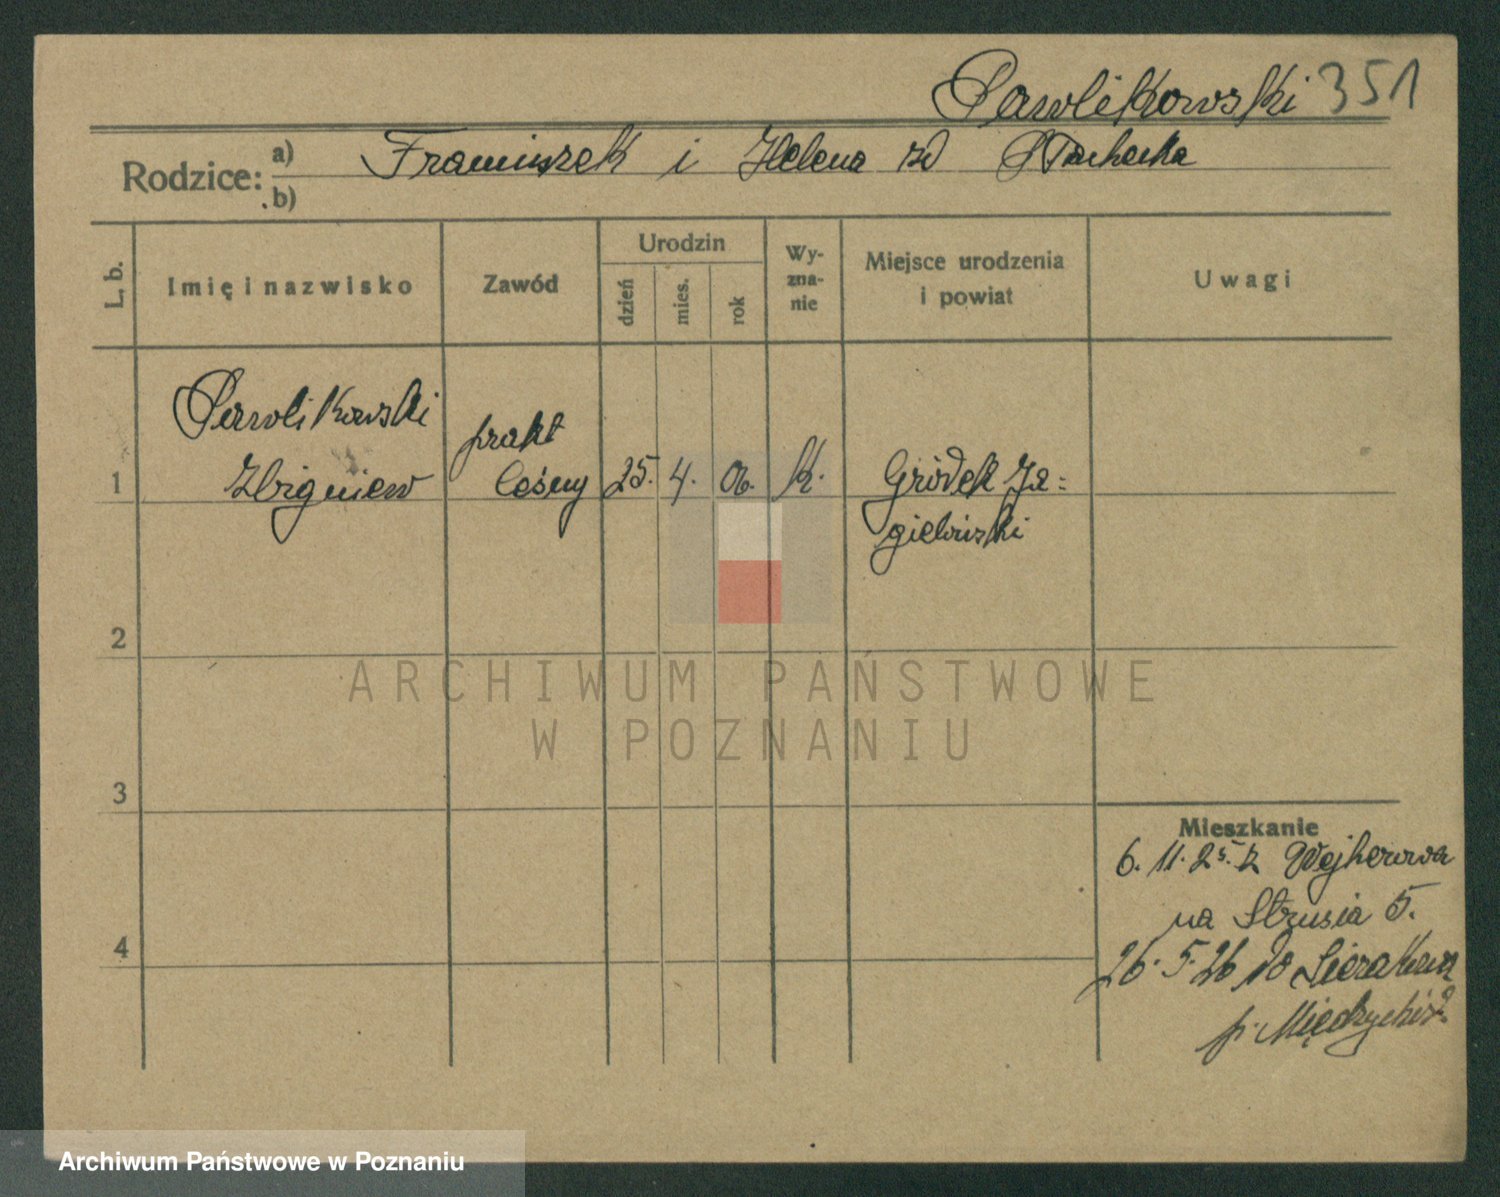 Pawlikowski 351
Rodzice: a) Franciszek i Helena zd Stachecka
b)
L. b.
Imię i nazwisko
Zawód
Urodzin
dzień
mies.
rok
Wy-
zna-
nie
Miejsce urodzenia
i powiat
Uwagi
Pawlikowski
Zbigniew
prakt
leśny
1
25. 4. 06. K.
Gródek Ja=
gieloński
2
3
4
Mieszkanie
6. 11. 25. z Wejherowa
na Strusia 5.
26. 5. 26 do Sierakowa
p. Międzychód.
ARCHIWUM PAŃSTWOWE
W POZNANIU
Archiwum Państwowe w Poznaniu